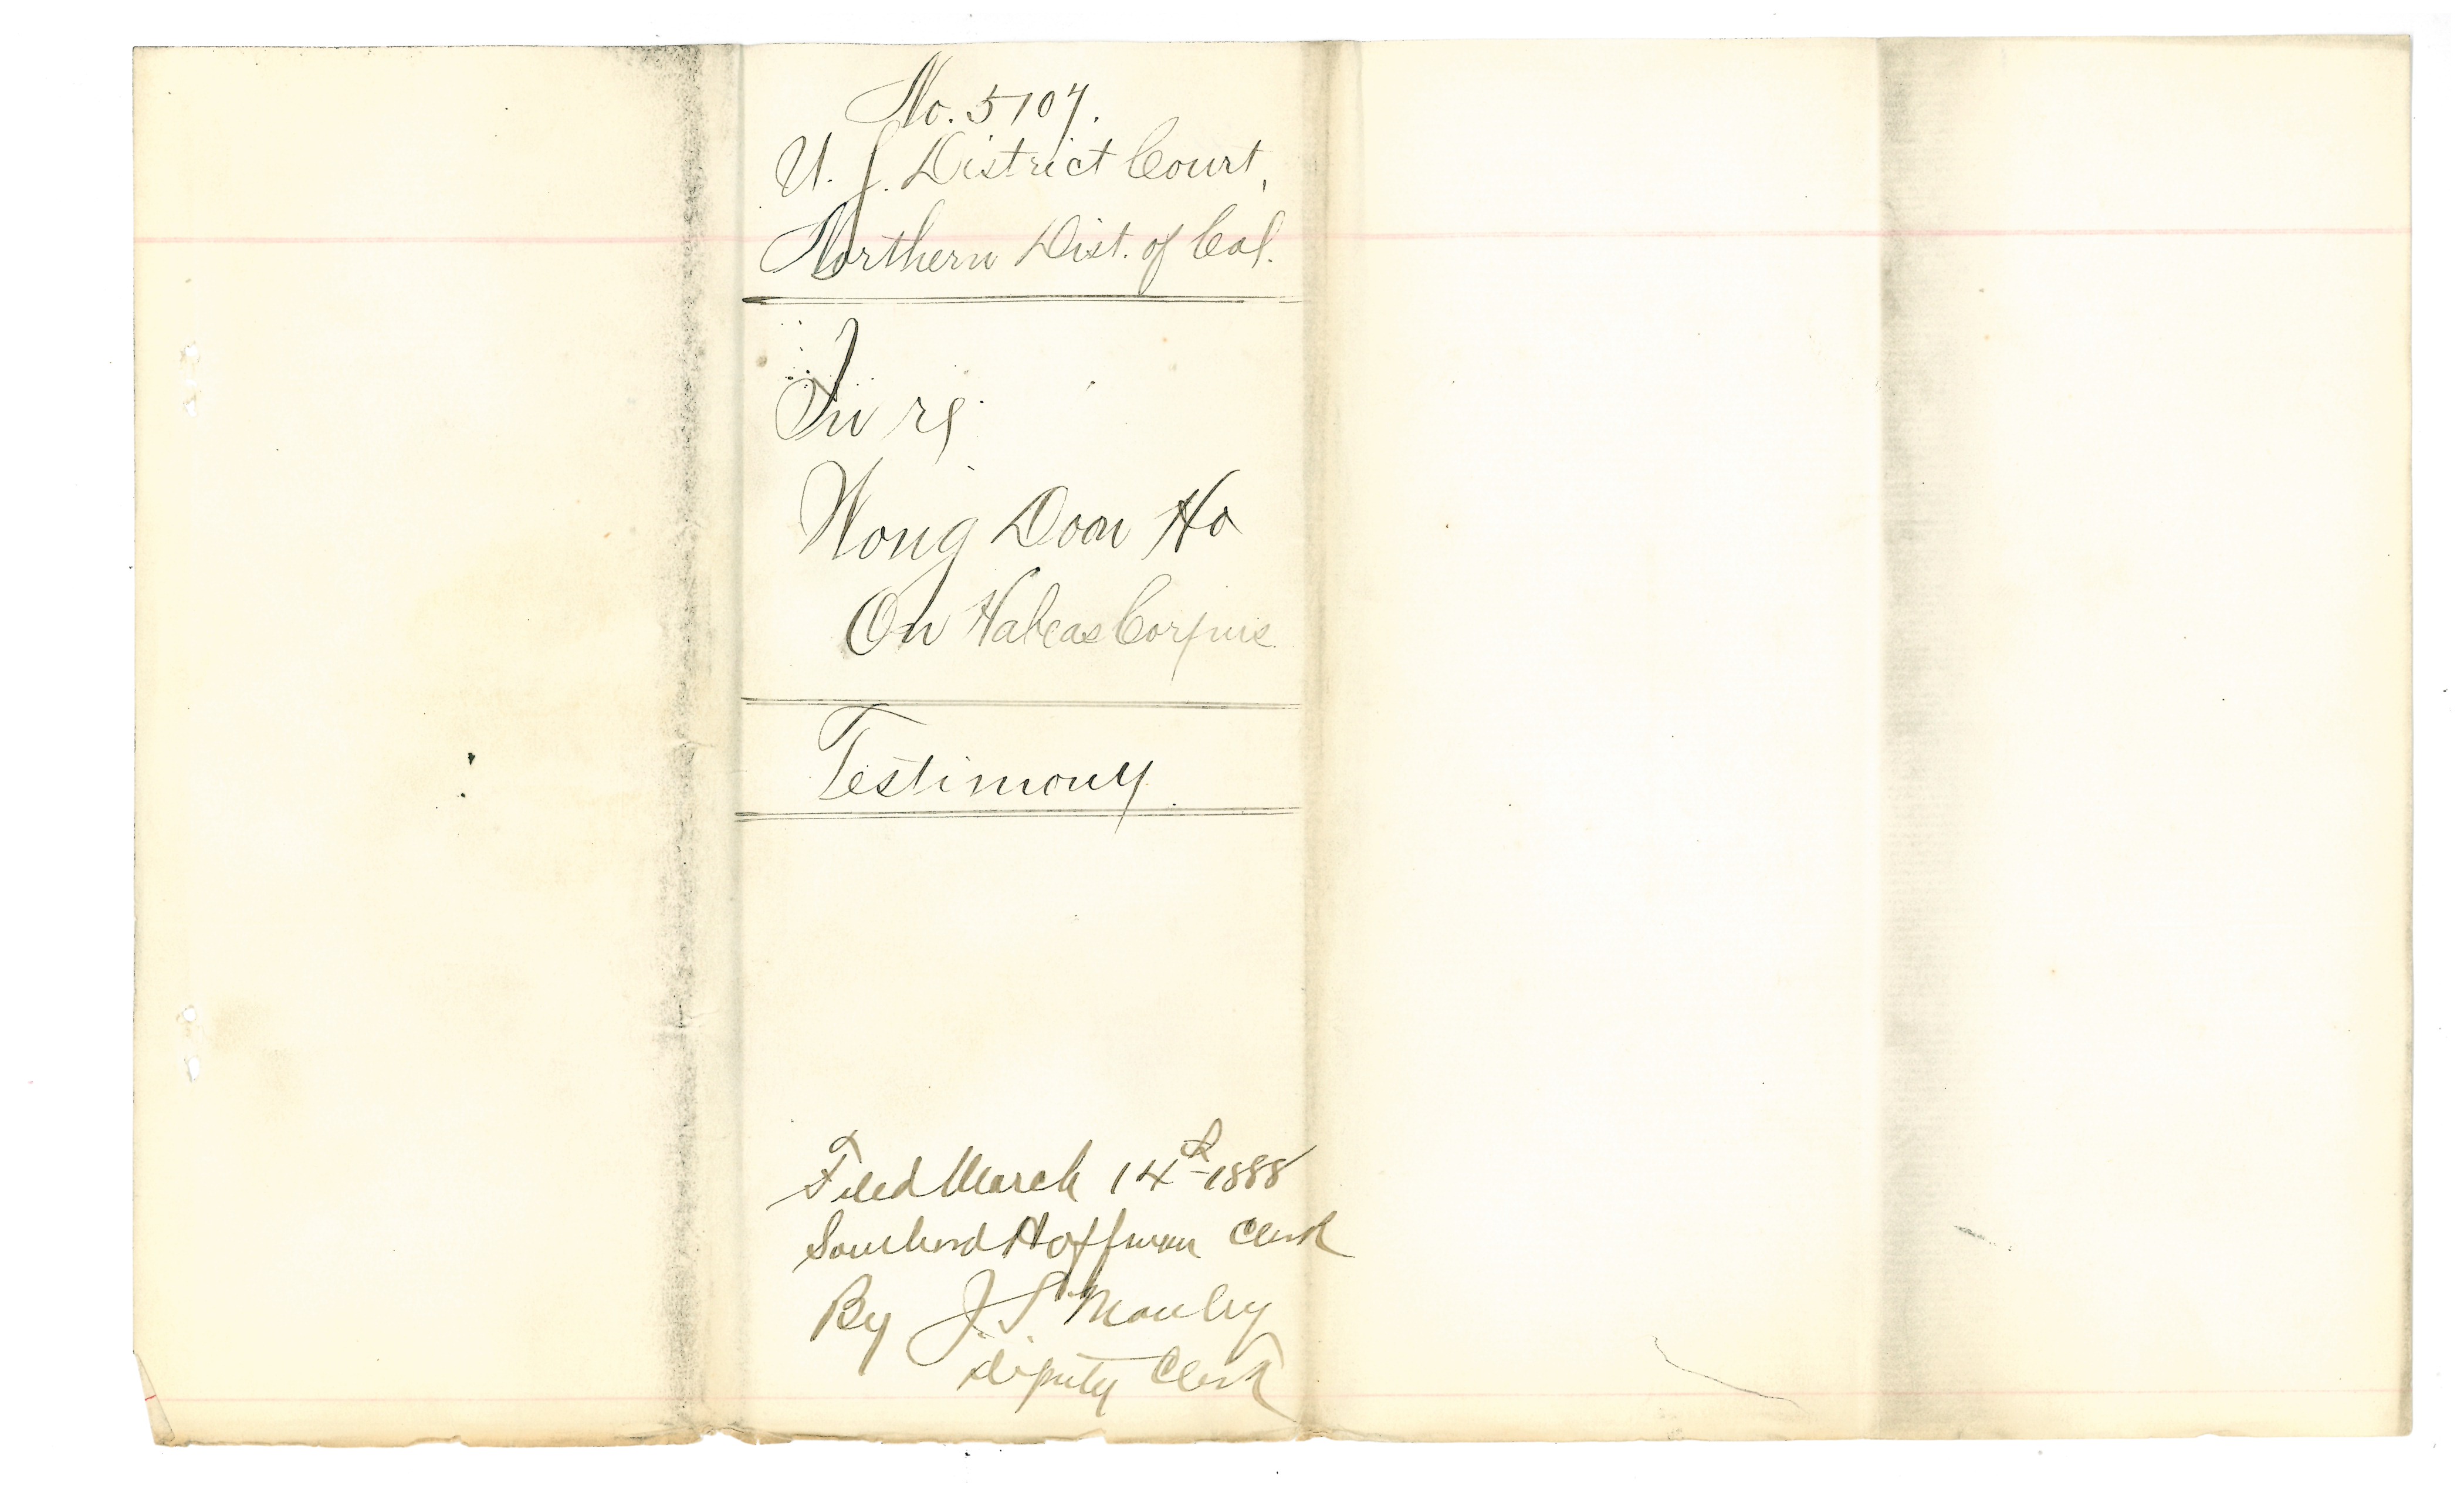 No. 5107.
U. S. District Court,
Northern Dist. of Cal.
In re
Wong Doon Ho
On Habeas Corpus
Testimony.
Filed March 14th 1888
Southard Hoffman Clerk
By J. S. Manley
Deputy Clerk